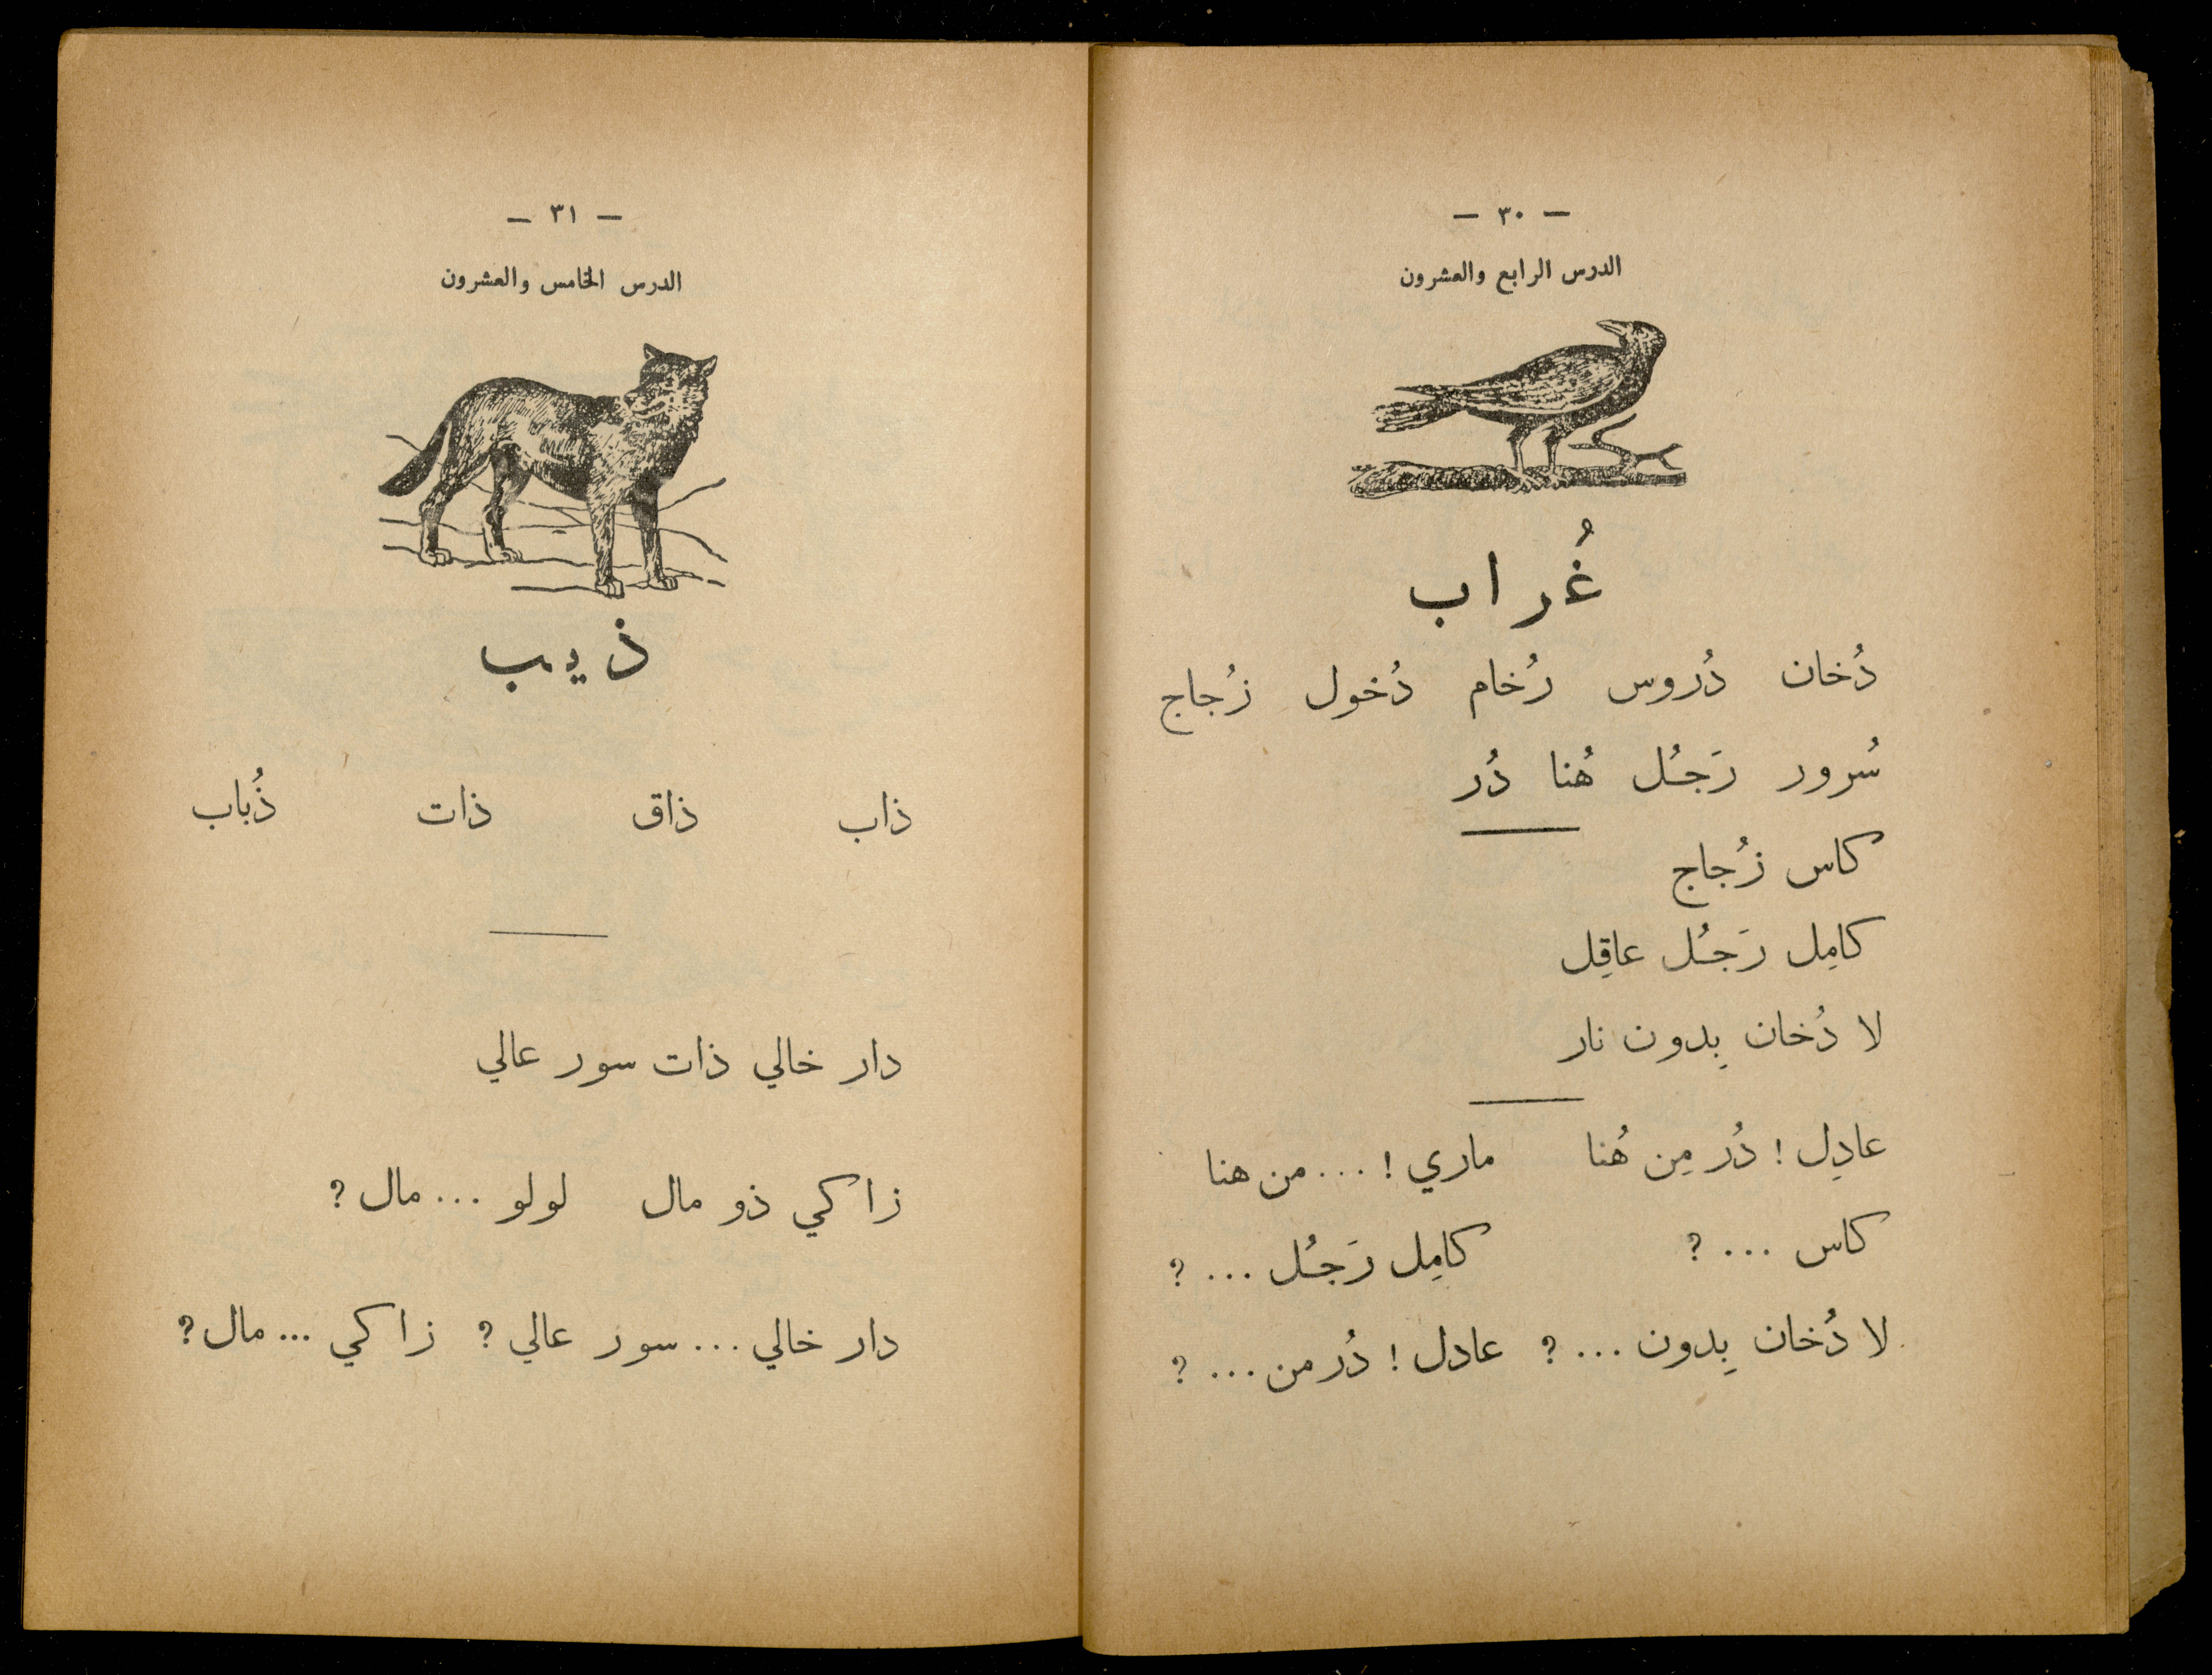 — ٣٠ —
الدرس الرابع والعشرون
غُراب
دُخان دُروس رُخام دُخول زُجاج
سُرور رَجُل هُنا دُر
كاس زُجاج
كامِل رَجُل عاقِل
لا دُخان بِدون نار
عادِل ! دُر مِن هُنا ماري ! ... من هنا
كاس ... ؟ كامِل رَجُل ... ؟
لا دُخان بِدون ... ؟ عادل ! دُر من ... ؟
— ٣١ —
الدرس الخامس والعشرون
ذيب
ذاب ذاق ذات ذُباب
دار خالي ذات سور عالي
زاكي ذو مال لولو ... مال ؟
دار خالي ... سور عالي ؟ زاكي ... مال ؟